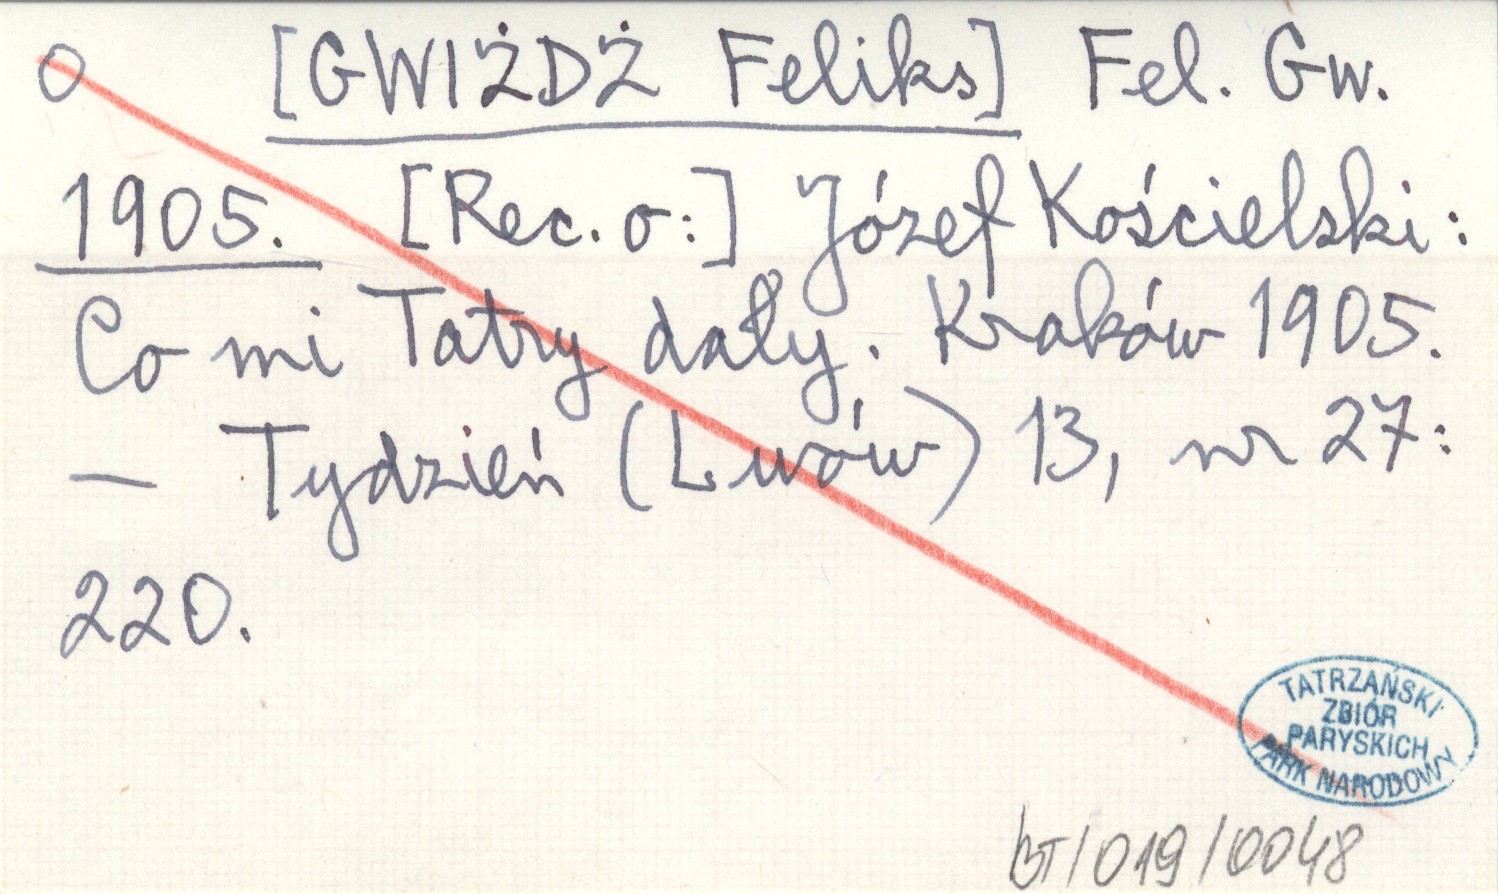 [GWIŻDŻ Feliks] Fel. Gw.
1905. [Rec. o:] Józef Kościelski:
Co mi Tatry dały. Kraków 1905.
— Tydzień (Lwów) 13, nr 27:
220.
TATRZAŃSKI
ZBIÓR
PARYSKICH
PARK NARODOWY
BT/019/0048